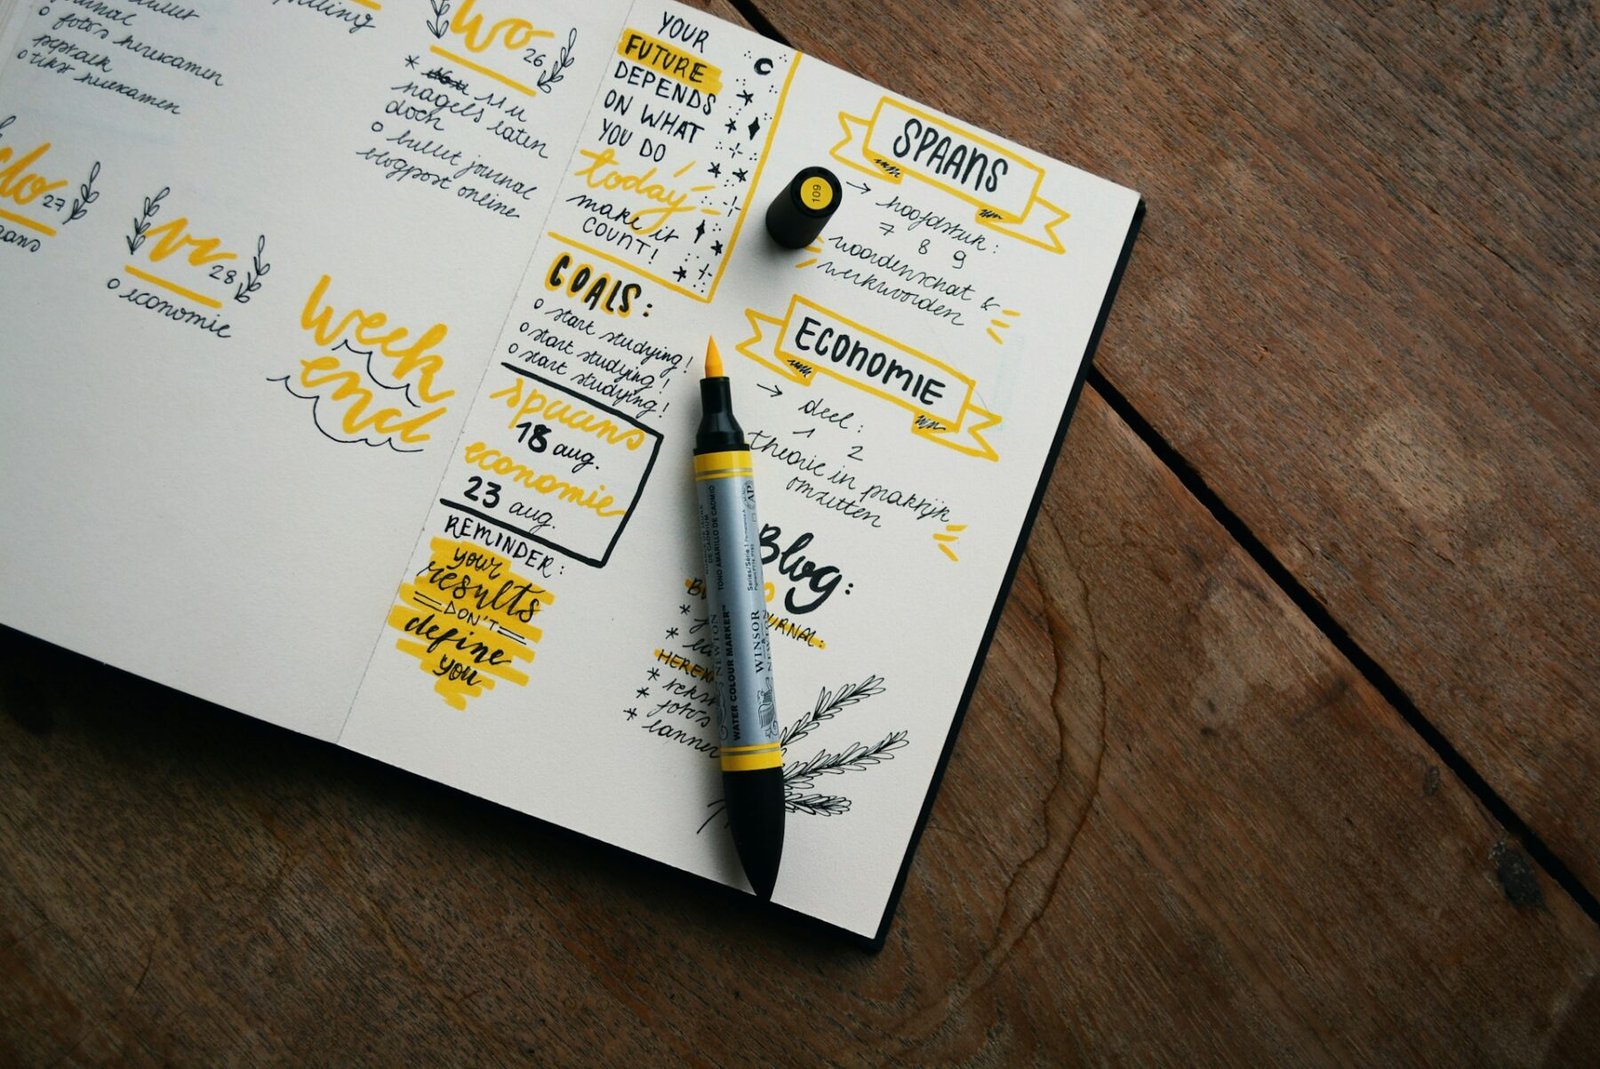 o foto's herexamen
o tekst herexamen
Wo
26
* 11 u
nagels laten
doen
o bullet journal
blogpost online
do
27
vr
28
o economie
Week
end
YOUR
FUTURE
DEPENDS
ON WHAT
YOU DO
today
make it
COUNT!
GOALS:
o start studying!
o start studying!
o start studying!
spaans
18 aug.
economie
23 aug.
REMINDER:
your
results
DON'T
define
you
SPAANS
→ hoofdstuk:
7 8 9
woordenschat &
werkwoorden
ECONOMIE
→ deel:
1 2
theorie in praktijk
omzetten
Blog:
URNAL:
HEREX
* tekst
* foto's
* lanner
109
WATER COLOUR MARKER™
WINSOR
& NEWTON